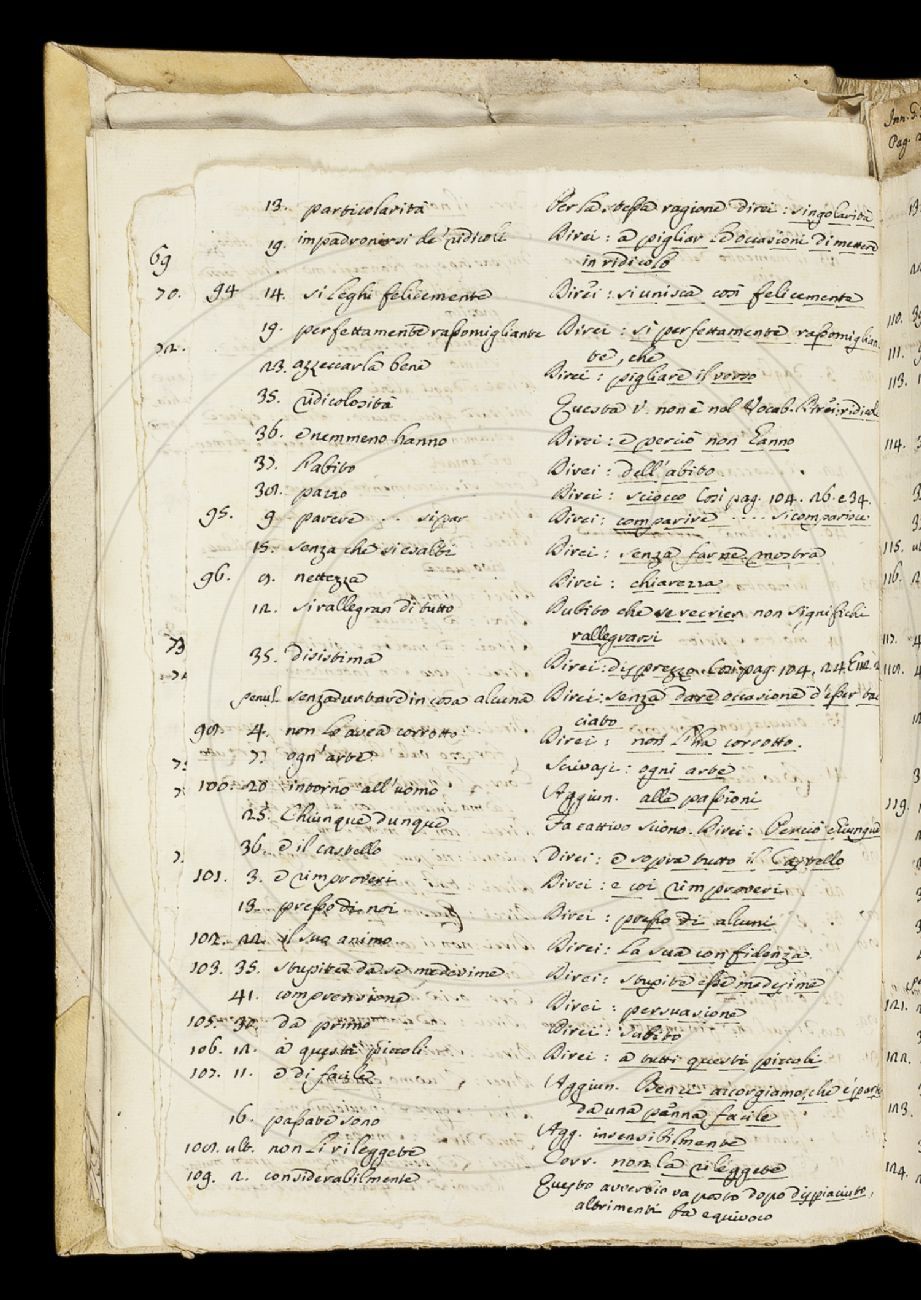 13. particolarità Per la stessa ragione direi: singolarità
19. impadronirsi de' ridicoli Direi: a pigliar le occasioni di mettere
69
in ridicolo
70. 94 14. si leghi felicemente Direi: si unisca così felicemente
19. perfettamente rassomigliante Direi: si perfettamente rassomiglian
72.
te, che
23. azzeccarla bene Direi: pigliare il verso
35. ridicolosità Questa v. non è nel Vocab. Direi: ridicol
36. e nemmeno hanno Direi: e perciò non hanno
37. l'abito Direi: dell'abito
38. pazzo Direi: sciocco Così pag. 104. 26. e 34.
95. 9 parere .. si par Direi: comparire .... si comparisce
15. senza che si esalti Direi: senza farne mostra
96. 8. nettezza Direi: chiarezza
12. si rallegran di tutto Dubito che se recrier non significhi
rallegrarsi
73
35. disistima Direi: disprezzo. Così pag. 104. 24.
penul. senza urbare in cosa alcuna Direi: senza dare occasione d'esser tac
ciato
98. 4. non le avea corrotto Direi: non l'ha corrotto.
7. ogn'arte Scrivasi: ogni arte
100. 20 intorno all'uomo Aggiun. alle passioni
25. Chiunque dunque Fa cattivo suono. Direi: Perciò chiunque
36. e il castello Direi: e sopra tutto il Castello
101. 3. e rimproveri Direi: e coi rimproveri
13. presso di noi Direi: presso di alcuni
102. 22. il suo animo Direi: la sua confidenza
103. 35. stupite da se medesime Direi: stupite esse medesime
41. comprensione Direi: persuasione
105. 32. da primo Direi: subito
106. 12. a questi piccoli Direi: a tutti questi piccoli
107. 11. e di facile Aggiun. Ben ci accorgiamo, che è part
da una penna facile
16. passate sono Agg. insensibilmente
108. ult. non li rileggete Corr. non la rileggete
109. 2. considerabilmente Questo avverbio va posto dopo dispiaciuto,
altrimenti fa equivoco
Pag.
110.
111.
113.
114.
115. ul
116. 2
117. 4
118.
119.
121.
122.
123.
124.